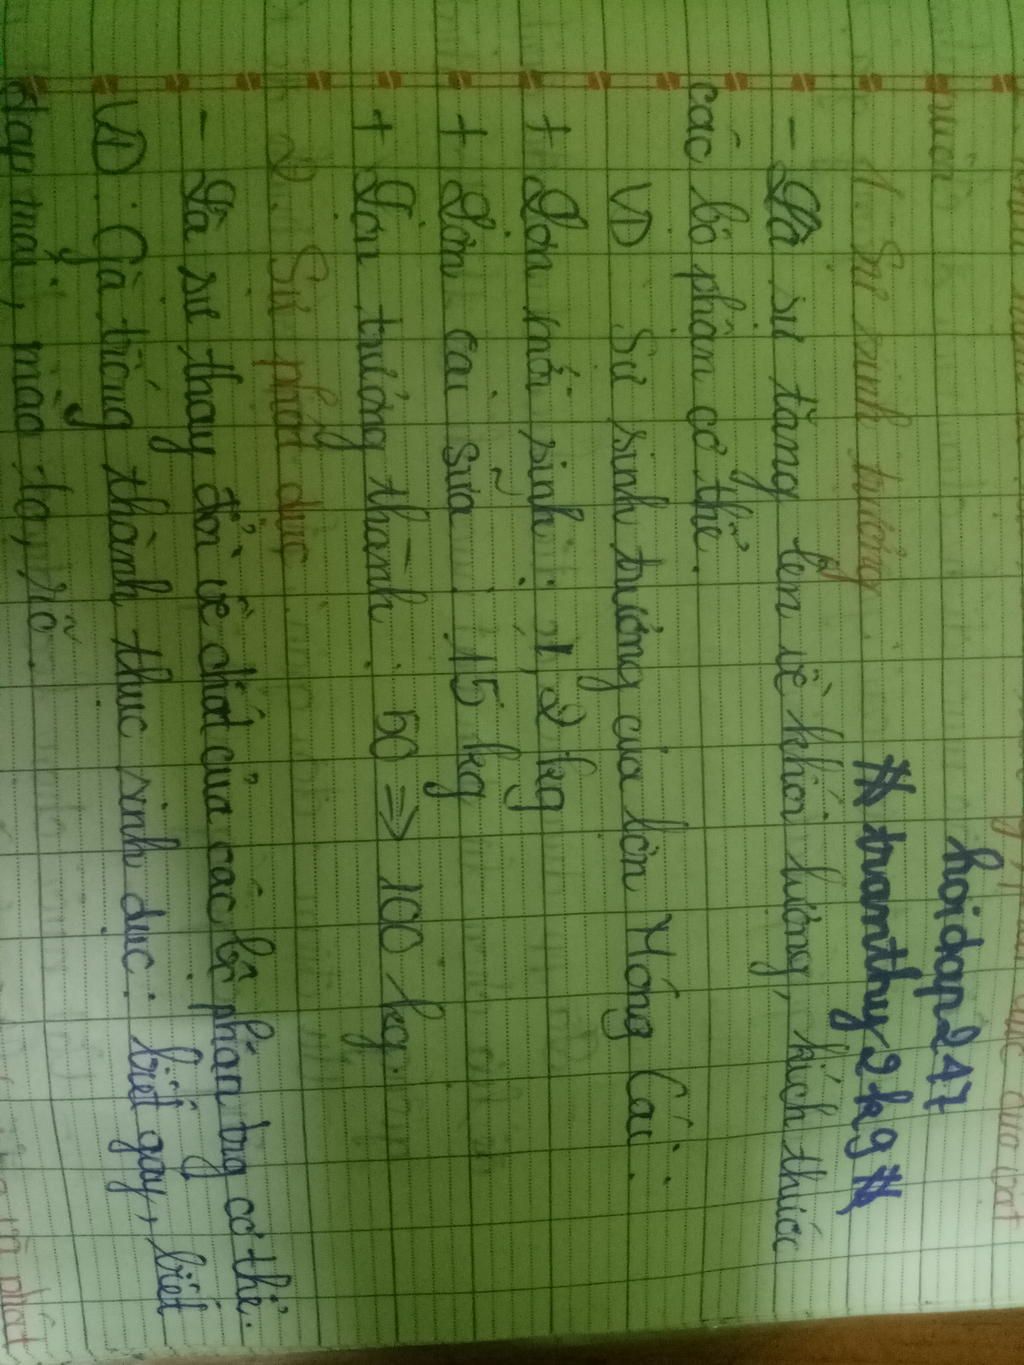 hoidap247
nuôi
# tramthy2k9 #
1. Sự sinh trưởng
- Là sự tăng lên về khối lượng, kích thước
các bộ phận cơ thể.
VD Sự sinh trưởng của lợn Móng Cái.
+ Lợn mới sinh: 1, 2 kg
+ Lợn cai sữa: 15 kg
+ Lợn trưởng thành: 50 => 100 kg.
2. Sự phát dục
- Là sự thay đổi về chất của các bộ phận trg cơ thể.
VD: Gà trống thành thục sinh dục: biết gáy, biết
đạp mái, mào to, rõ.